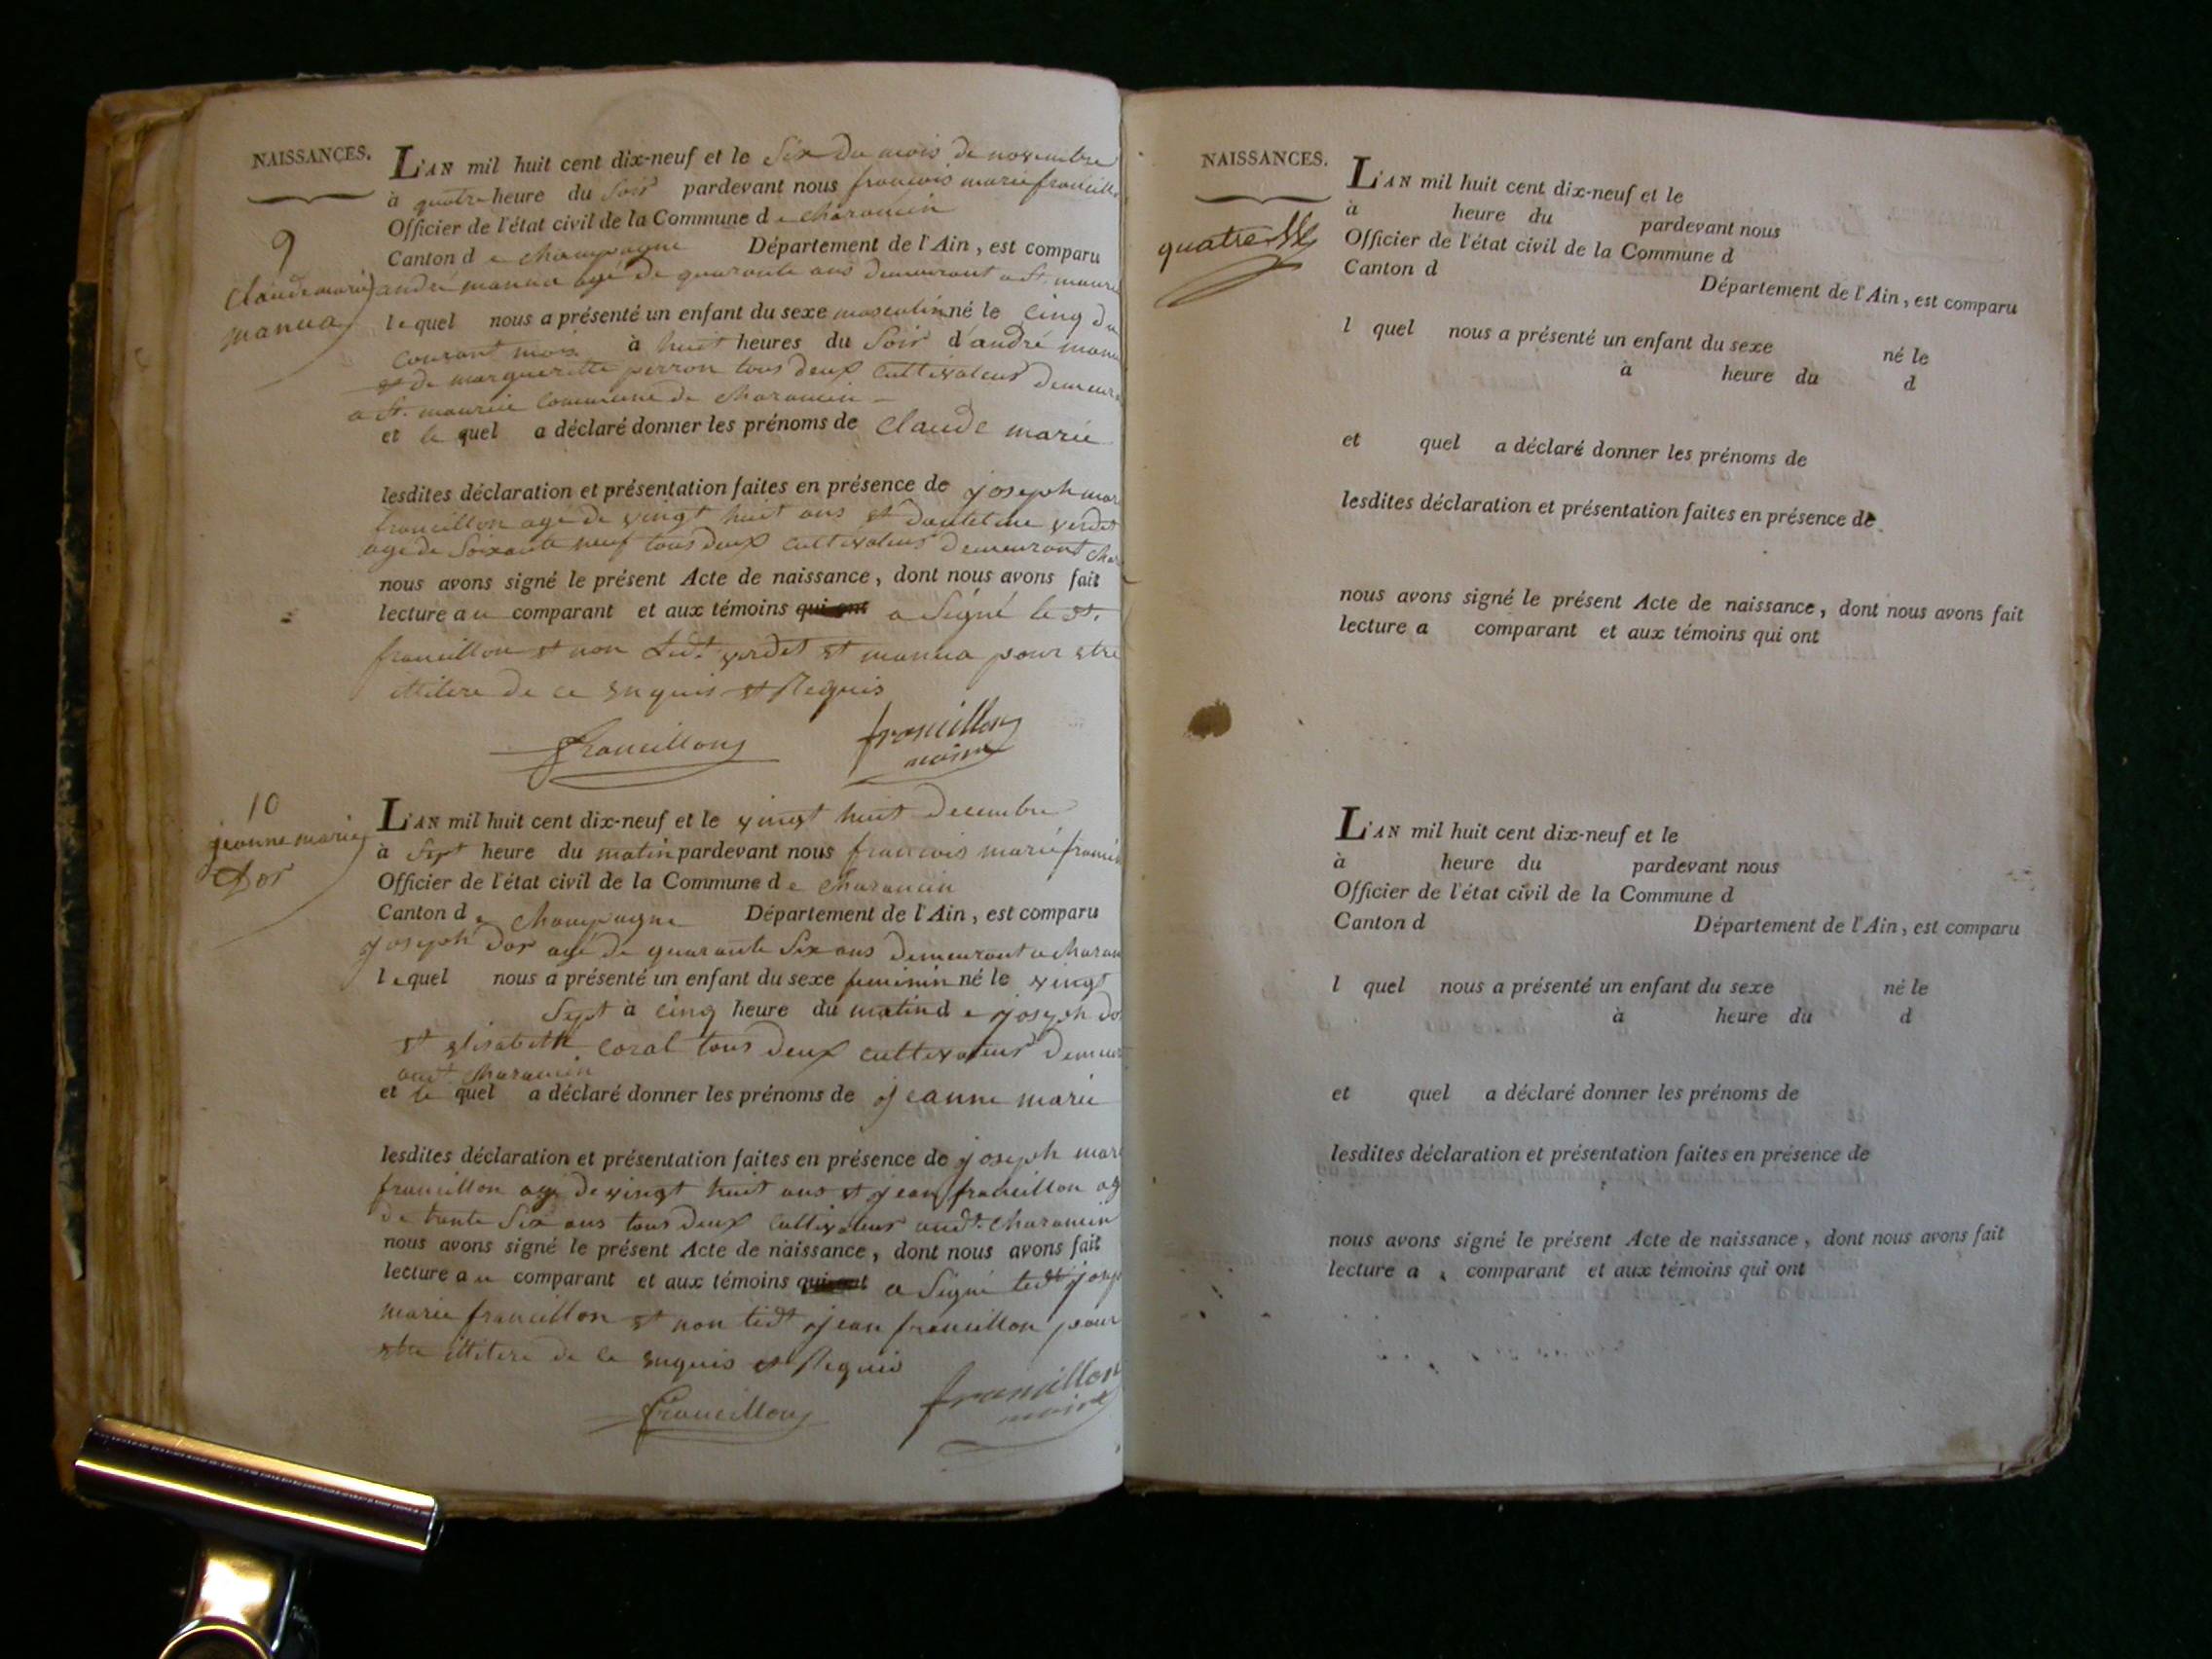 NAISSANCES.
9
Claude marie
manua
L'AN mil huit cent dix-neuf et le Six du mois de novembre
à quatre heure du Soir pardevant nous francois marie francillo
Officier de l'état civil de la Commune de charancin
Canton de champagne Département de l'Ain, est comparu
andré manua agé de quarante ans demeurant a St. maurie
lequel nous a présenté un enfant du sexe masculin né le Cinq du
Courant mois à huit heures du Soir d'andré manu
et de margueritte perron tous deux Cultivateurs demeura
a St. maurice Commune de charancin
et le quel a déclaré donner les prénoms de Claude marie
lesdites déclaration et présentation faites en présence de joseph mar
francillon agé de vingt huit ans et verdet
agé de Soixante neuf tous deux Cultivateurs demeurant char
nous avons signé le présent Acte de naissance, dont nous avons fait
lecture au comparant et aux témoins qui ont a Signé le Sr.
francillon et non Ledt. verdet et manua pour etre
ittitere de ce enquis et Requis
francillon francillon
maire
10
jeanne marie
Dor
L'AN mil huit cent dix-neuf et le vingt huit decembre
à Sept heure du matin pardevant nous francois marie francil
Officier de l'état civil de la Commune de charancin
Canton de champagne Département de l'Ain, est comparu
joseph Dor agé de quarante Six ans demeurant a charan
lequel nous a présenté un enfant du sexe feminin né le vingt
Sept à cinq heure du matin de joseph do
et elisabeth coral tous deux cultivateurs demeur
audt. charancin
et le quel a déclaré donner les prénoms de jeanne marie
lesdites déclaration et présentation faites en présence de joseph mari
francillon agé de vingt huit ans et jean francillon ag
de trante Six ans tous deux Cultivateurs audt. charancin
nous avons signé le présent Acte de naissance, dont nous avons fait
lecture au comparant et aux témoins qui ont a Signé ledt josep
marie francillon et non ledt jean francillon pour
etre ittitere de ce enquis et Requis
francillon francillon
maire
NAISSANCES.
quatre
L'AN mil huit cent dix-neuf et le
à heure du pardevant nous
Officier de l'état civil de la Commune d
Canton d Département de l'Ain, est comparu
l quel nous a présenté un enfant du sexe né le
à heure du d
et quel a déclaré donner les prénoms de
lesdites déclaration et présentation faites en présence de
nous avons signé le présent Acte de naissance, dont nous avons fait
lecture a comparant et aux témoins qui ont
L'AN mil huit cent dix-neuf et le
à heure du pardevant nous
Officier de l'état civil de la Commune d
Canton d Département de l'Ain, est comparu
l quel nous a présenté un enfant du sexe né le
à heure du d
et quel a déclaré donner les prénoms de
lesdites déclaration et présentation faites en présence de
nous avons signé le présent Acte de naissance, dont nous avons fait
lecture a comparant et aux témoins qui ont